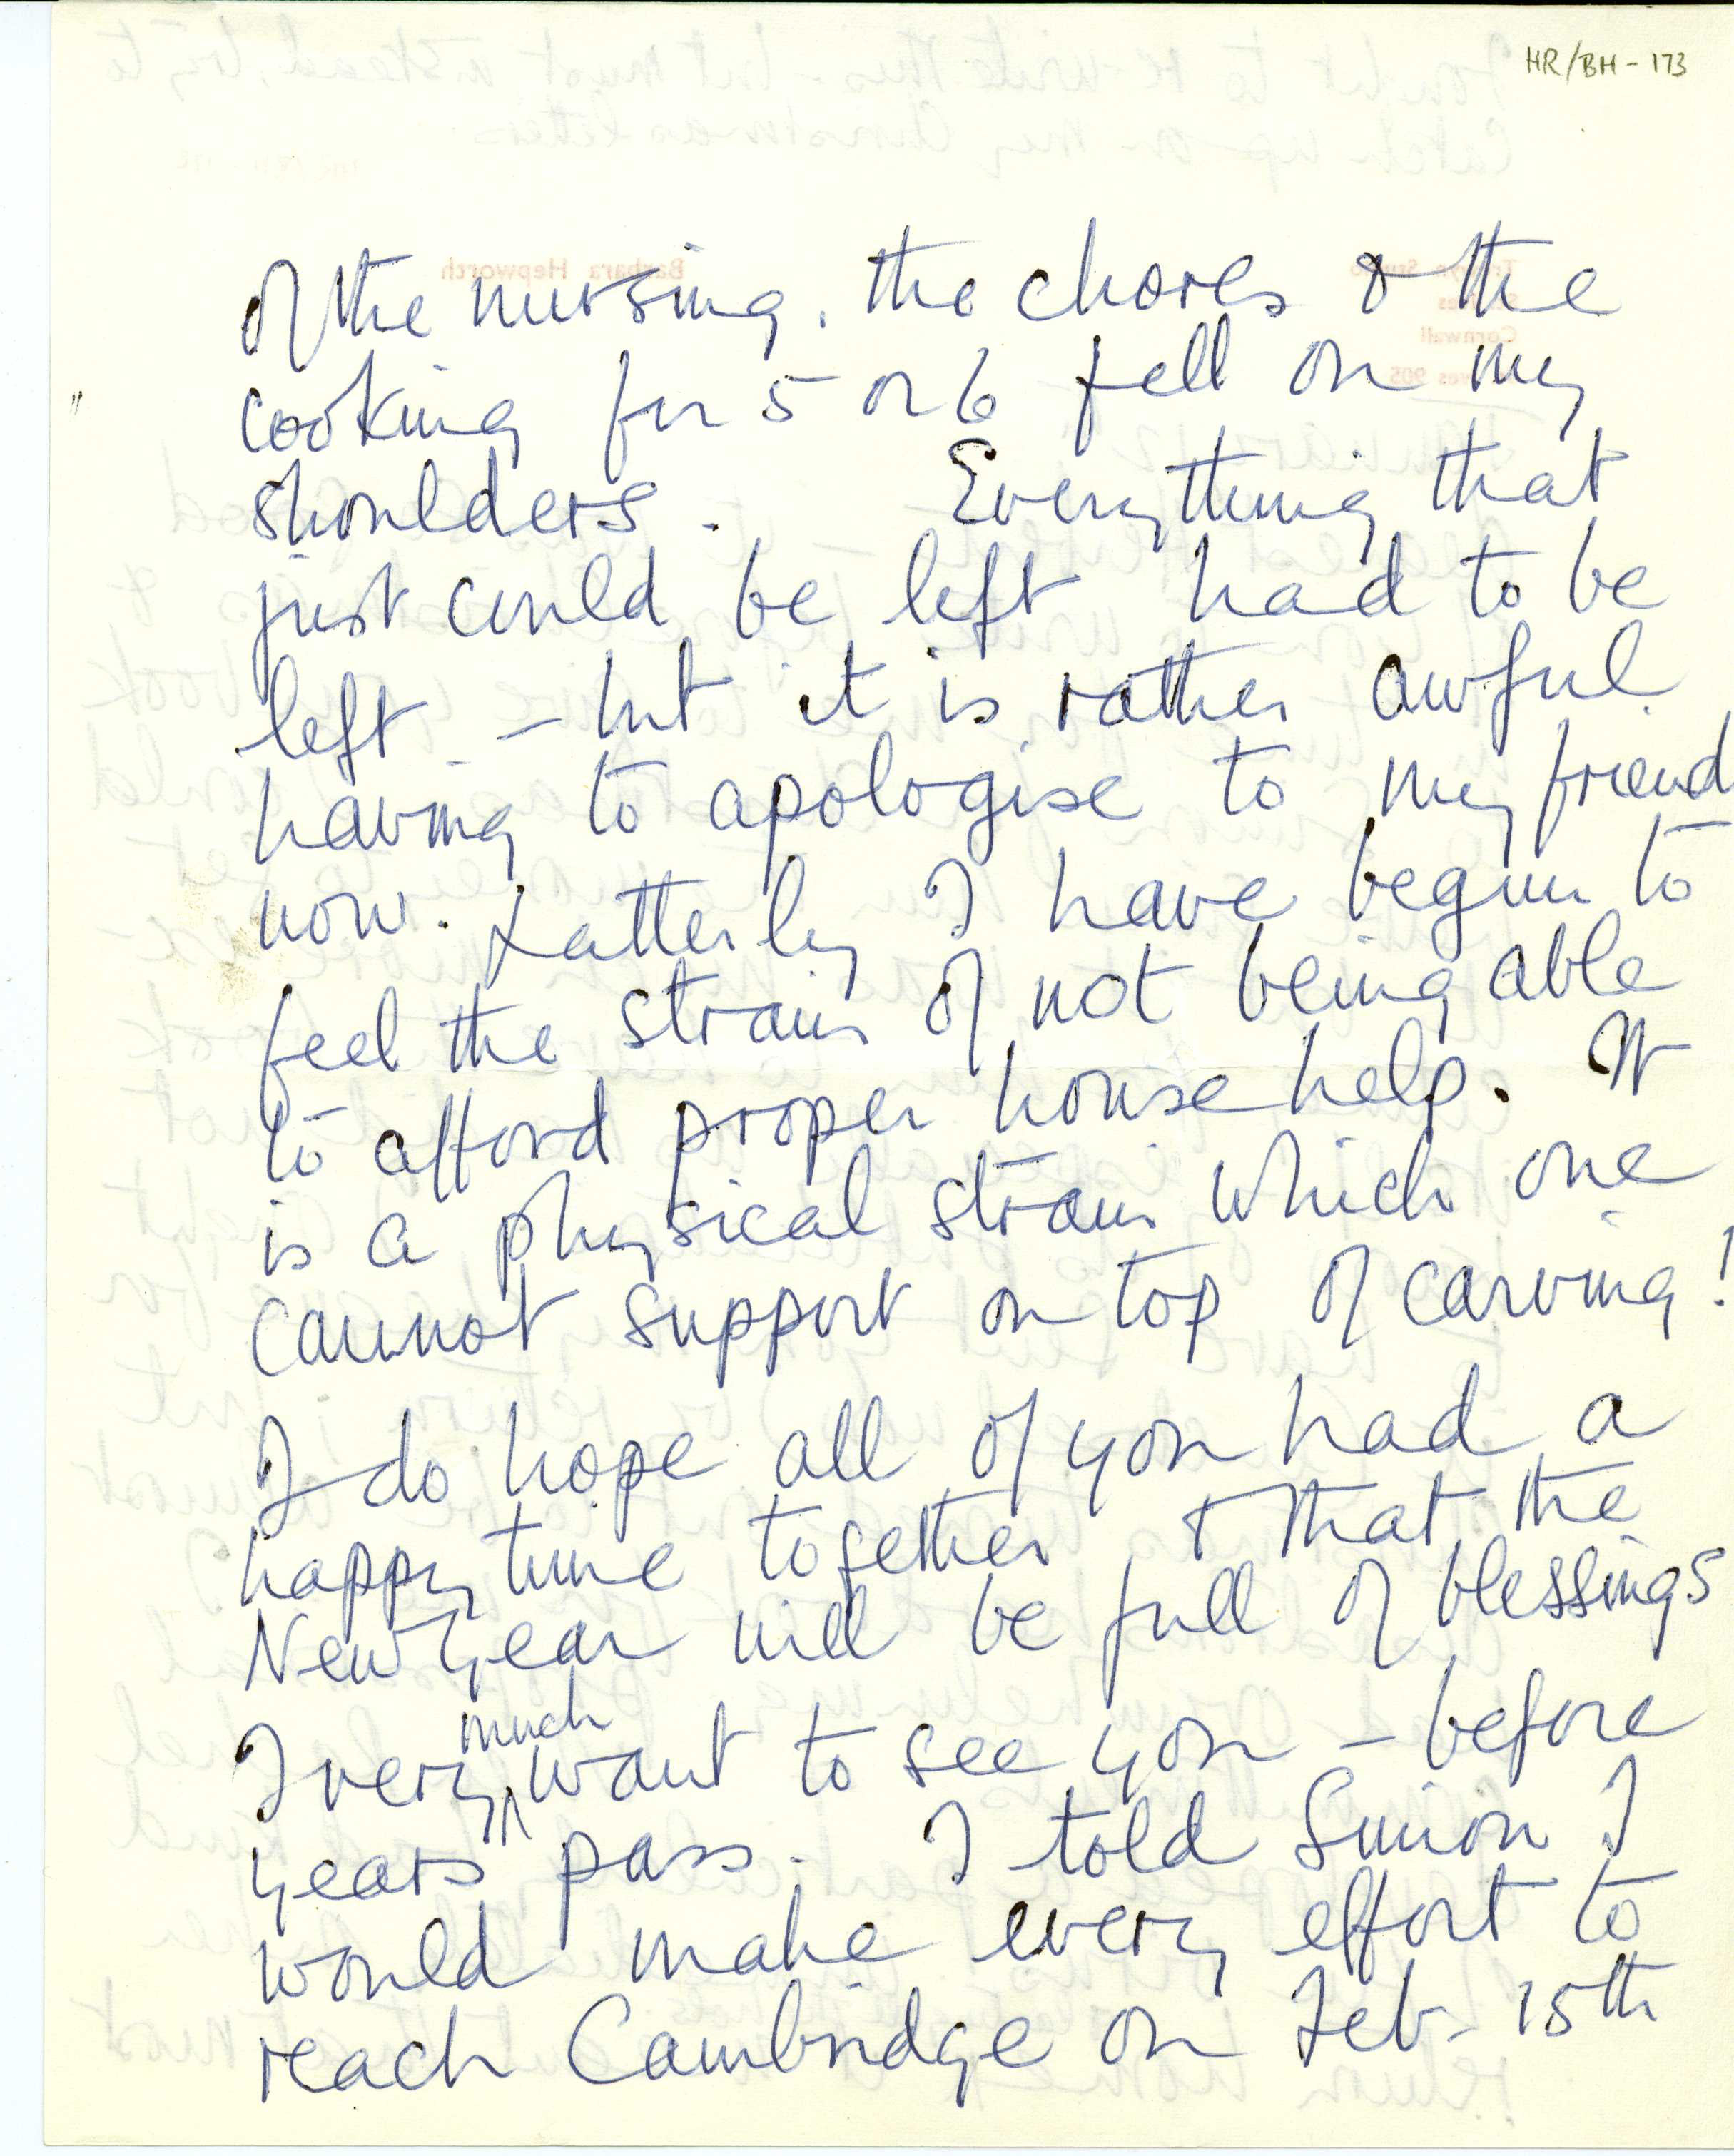 HR/BH - 173
of the nursing, the chores & the
cooking for 5 or 6 fell on my
shoulders. Everything that
just could be left had to be
left - but it is rather awful
having to apologise to my friend
now. Latterly I have begun to
feel the strain of not being able
to afford proper house help. It
is a physical strain which one
cannot support on top of carving!
I do hope all of you had a
happy time together & that the
New Year will be full of blessings
I very much want to see you - before
years pass. I told Simon I
would make every effort to
reach Cambridge on Feb. 15th